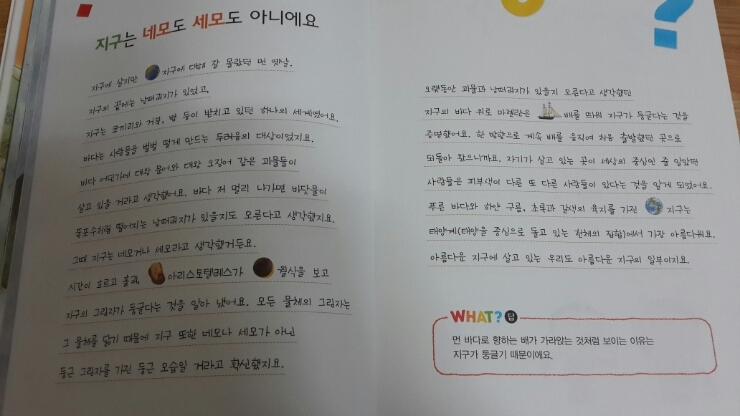 지구는 네모도 세모도 아니에요
지구에 살지만 지구에 대해 잘 몰랐던 먼 옛날.
지구의 끝에는 낭떠러지가 있었고,
지구는 코끼리와 거북, 뱀 등이 받치고 있던 하나의 세계였어요.
바다는 사람들을 벌벌 떨게 만드는 두려움의 대상이었지요.
바다 어딘가에 대왕 문어와 대왕 오징어 같은 괴물들이
살고 있을 거라고 생각했어요. 바다 저 멀리 나가면 바닷물이
폭포수처럼 떨어지는 낭떠러지가 있을지도 모른다고 생각했지요.
그때 지구는 네모거나 세모라고 생각했거든요.
시간이 흐르고 흘러, 아리스토텔레스가 월식을 보고
지구의 그림자가 둥글다는 것을 알아 냈어요. 모든 물체의 그림자는
그 물체를 닮기 때문에 지구 또한 네모나 세모가 아닌
둥근 그림자를 가진 둥근 모습일 거라고 확신했지요.
오랫동안 괴물과 낭떠러지가 있을지 모른다고 생각했던
지구의 바다 위로 마젤란은 배를 띄워 지구가 둥글다는 것을
증명했어요. 한 방향으로 계속 배를 움직여 처음 출발했던 곳으로
되돌아 왔으니까요. 자기가 살고 있는 곳이 세상의 중심인 줄 알았던
사람들은 피부색이 다른 또 다른 사람들이 있다는 것을 알게 되었어요.
푸른 바다와 하얀 구름, 초록과 갈색의 육지를 가진 지구는
태양계(태양을 중심으로 돌고 있는 천체의 집합)에서 가장 아름다워요.
아름다운 지구에 살고 있는 우리도 아름다운 지구의 일부이지요.
WHAT? 답
먼 바다로 향하는 배가 가라앉는 것처럼 보이는 이유는
지구가 둥글기 때문이에요.